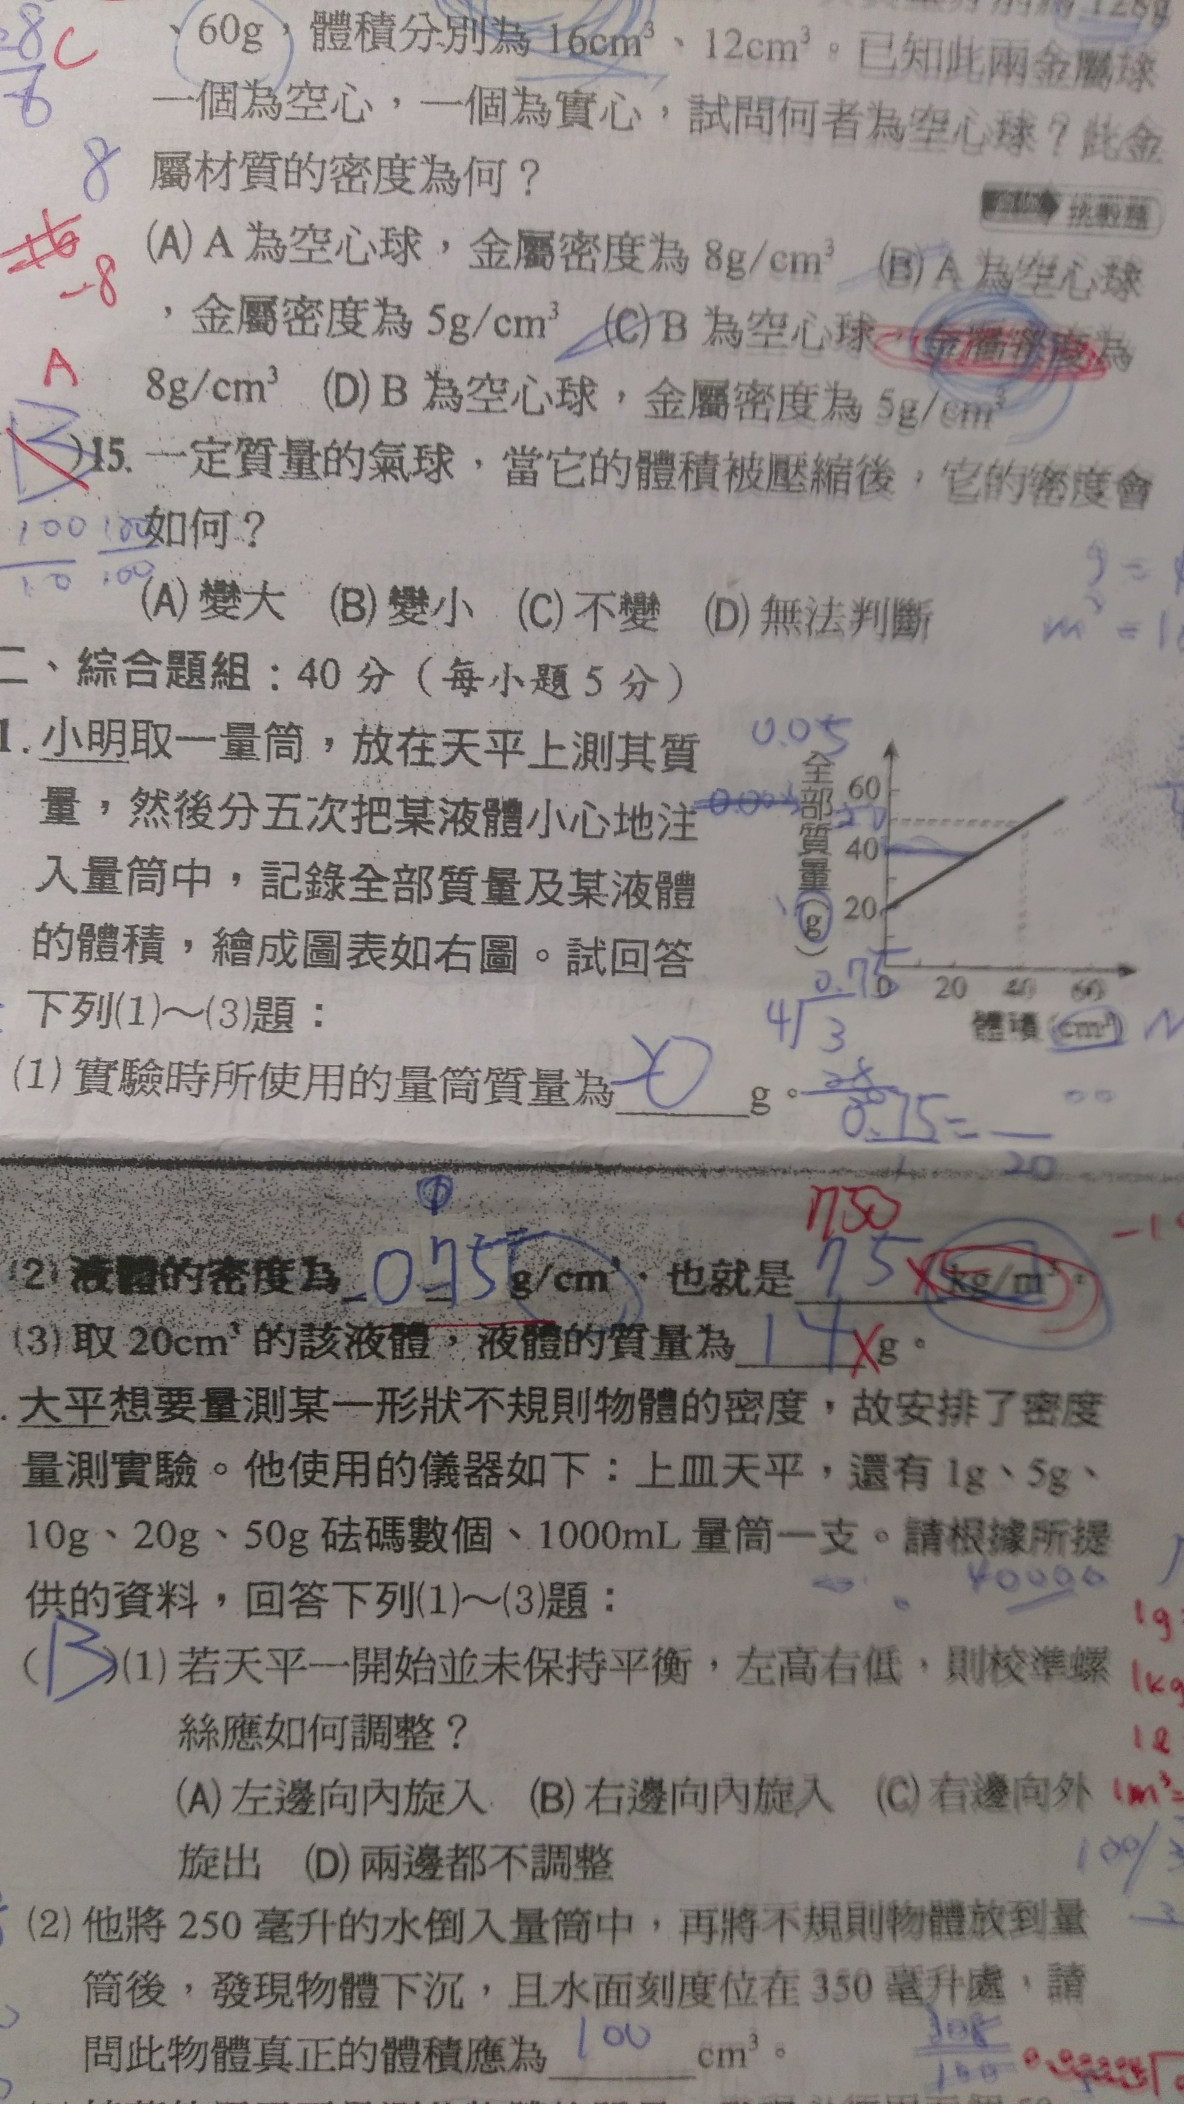 、60g，體積分別為 16cm³、12cm³。已知此兩金屬球
一個為空心，一個為實心，試問何者為空心球？此金
屬材質的密度為何？
挑戰題
(A) A 為空心球，金屬密度為 8g/cm³ (B) A 為空心球
，金屬密度為 5g/cm³ (C) B 為空心球，金屬密度為
8g/cm³ (D) B 為空心球，金屬密度為 5g/cm³
C
8
-8
A
B
)15. 一定質量的氣球，當它的體積被壓縮後，它的密度會
如何？
(A) 變大 (B) 變小 (C) 不變 (D) 無法判斷
二、綜合題組：40 分（每小題 5 分）
1. 小明取一量筒，放在天平上測其質
量，然後分五次把某液體小心地注
入量筒中，記錄全部質量及某液體
的體積，繪成圖表如右圖。試回答
下列(1)～(3)題：
0.05
全部質量(g)
60
40
20
0 20 40 60
體積(cm³)
0.75
4 3
(1) 實驗時所使用的量筒質量為 g。
(2) 液體的密度為 0.75 g/cm³，也就是 75 kg/m³。
750
(3) 取 20cm³ 的該液體，液體的質量為 14 g。
. 大平想要量測某一形狀不規則物體的密度，故安排了密度
量測實驗。他使用的儀器如下：上皿天平，還有 1g、5g、
10g、20g、50g 砝碼數個、1000mL 量筒一支。請根據所提
供的資料，回答下列(1)～(3)題：
40000
(B)(1) 若天平一開始並未保持平衡，左高右低，則校準螺
絲應如何調整？
(A) 左邊向內旋入 (B) 右邊向內旋入 (C) 右邊向外
旋出 (D) 兩邊都不調整
1g
1kg
1m³=
(2) 他將 250 毫升的水倒入量筒中，再將不規則物體放到量
筒後，發現物體下沉，且水面刻度位在 350 毫升處，請
問此物體真正的體積應為 100 cm³。